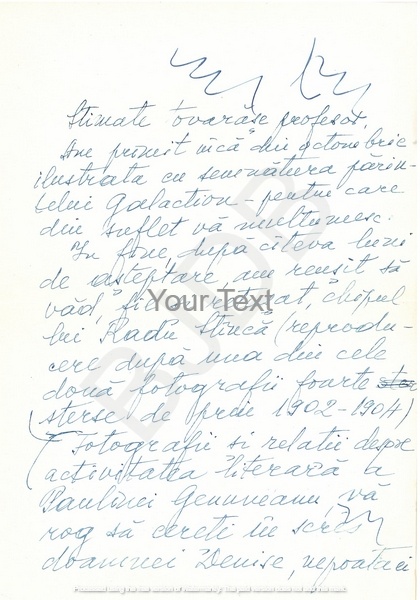 Stimate tovarăşe profesor,
Am primit încă din octombrie
ilustrata cu semnătura părin-
telui Galaction – pentru care
din suflet vă mulţumesc.
În fine, după cîteva luni
de aşteptare, am reuşit să
văd, chipul
lui Radu Stîncă (reprodu-
cere după una din cele
două fotografii foarte
şterse de prin 1902-1904)
Fotografii şi relaţii despre
activitatea literară a
Paulinei vă
rog să cereţi în scris
doamnei Denise, nepoatei
Your Text
BJDB